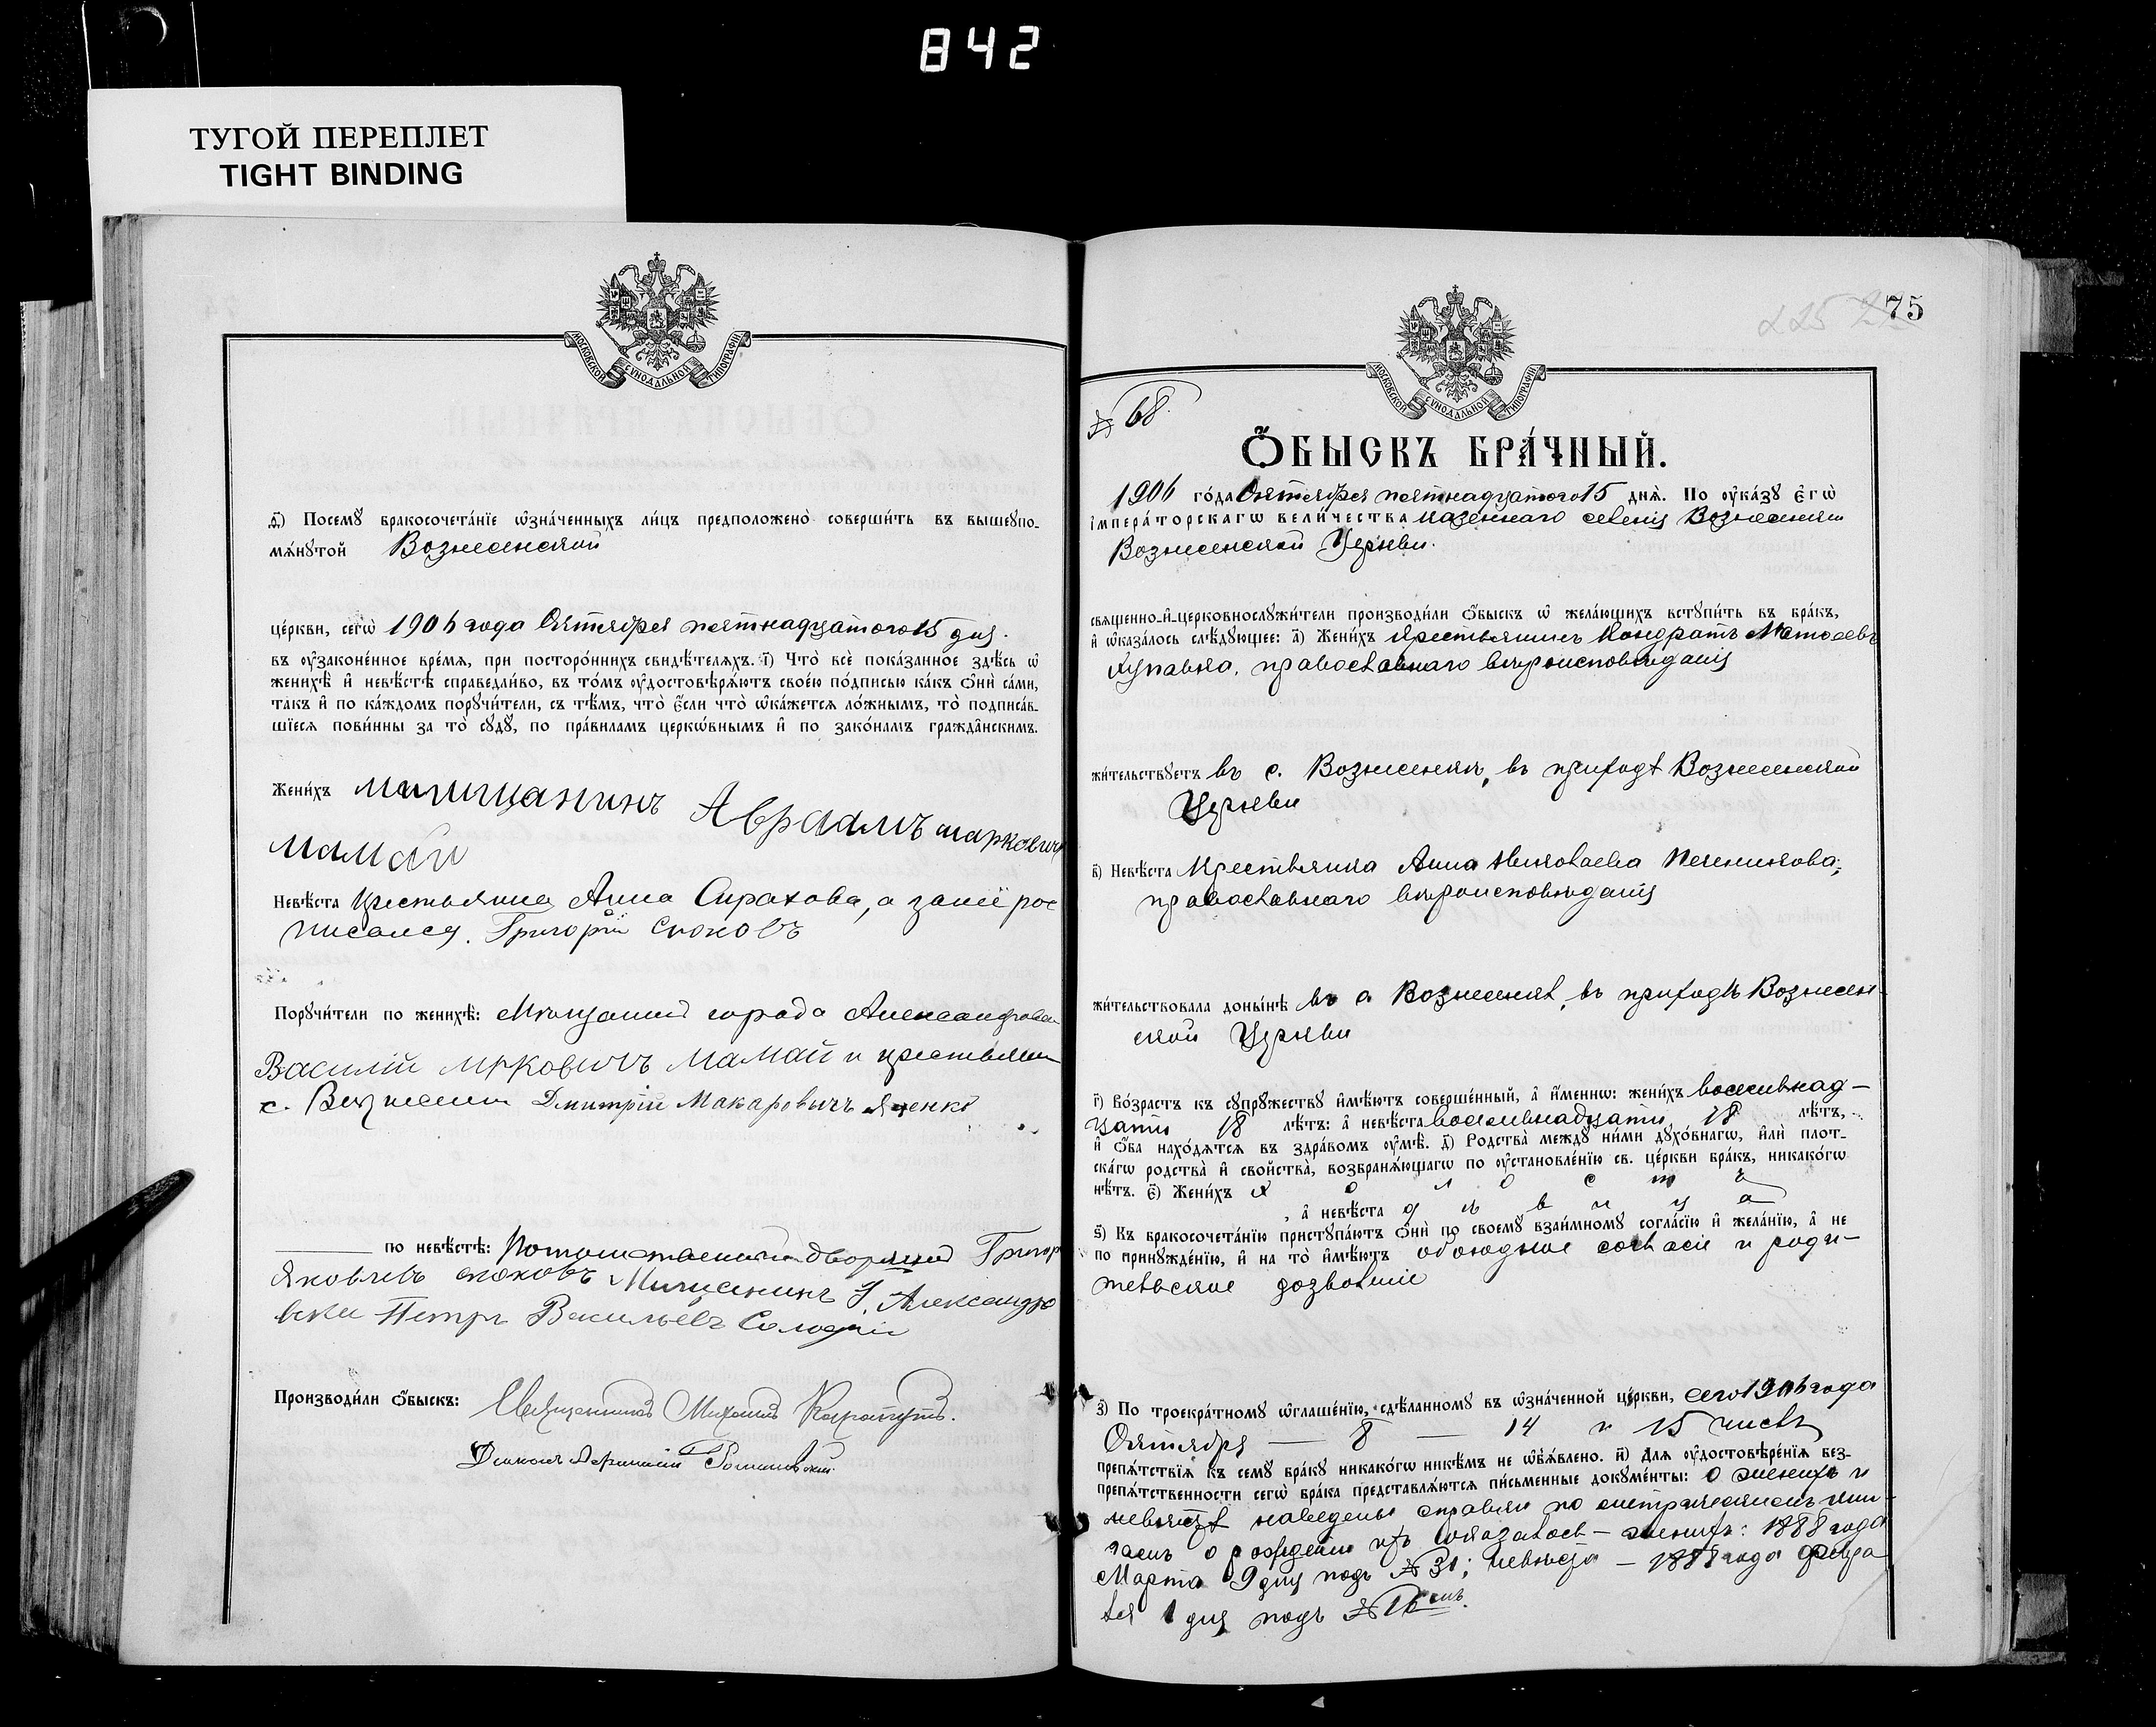 842
ТУГОЙ ПЕРЕПЛЕТ
TIGHT BINDING
МОСКОВСКОЙ СѴНОДАЛЬНОЙ ТИПОГРАФІИ
ѳ҃) Посемꙋ бракосочета́нїе ѡ҆зна́ченныхъ ли́цъ предположено̀ соверши́ть въ вышеꙋпо-
мѧ́нꙋтой Вознесенской
це́ркви, сегѡ̀ 1906 года Октября пятнадцатого 15 дня.
въ ᲂу҆зако́ненное вре́мѧ, при посторо́ннихъ свидѣ́телѧхъ. і҃) Что̀ всѐ пока́занное здѣ́сь ѡ҆
женихѣ̀ и҆ невѣ́стѣ справедли́во, въ то́мъ ᲂу҆достовѣрѧ́ютъ свое́ю по́дписью ка́къ ѻ҆нѝ са́ми,
та́къ и҆ по ка́ждомъ порꙋчи́тели, съ тѣ́мъ, что̀ є҆́сли что̀ ѡ҆ка́жетсѧ ло́жнымъ, то̀ подписа́в-
шїесѧ пови́нны за то̀ сꙋдꙋ̀, по пра́виламъ церкѡ́внымъ и҆ по зако́намъ гражда́нскимъ.
Жени́хъ мещанинъ Авраамъ марковичъ
мамай
Невѣ́ста крестьянка Анна Сирахова, а за неё рос
писался. Григорій Скоковъ
Порꙋчи́тели по женихѣ̀: Мещанинъ города Александровска
Василій мрковичъ мамай и крестьянин
с. Вознесенки Дмитрій Макаровичъ Яценко
по невѣ́стѣ: Потомственный дворянин Григор
Яковлевъ скоковъ Мещанинъ г. Александро
вска Петръ Васильевъ
Производи́ли ѻ҆́быскъ: Священникъ Михаилъ
Діаконъ
75
225
МОСКОВСКОЙ СѴНОДАЛЬНОЙ ТИПОГРАФІИ
№ 68.
Ѻ҆БЫСКЪ БРА́ЧНЫЙ.
1906 го́да Октября пятнадцатого 15 днѧ̀. По ᲂу҆ка́зꙋ є҆гѡ̀
і҆мпера́торскагѡ вели́чества казеннаго селенія Вознесенки
Вознесенской Церкви.
свѧще́нно-и҆-церковнослꙋжи́тели производи́ли ѻ҆́быскъ ѡ҆ жела́ющихъ встꙋпи́ть въ бра́къ,
и҆ ѡ҆каза́лось слѣ́дꙋющее: а҃) Жени́хъ крестьянинъ Кондратъ Матвеевъ
православнаго вѣроисповѣданія
жи́тельствꙋетъ въ с. Вознесенкѣ, въ приходѣ Вознесенской
Церкви
в҃) Невѣ́ста Крестьянка Анна Николаева
православнаго вѣроисповѣданія
жи́тельствовала доны́нѣ въ с Вознесенкѣ, въ приходѣ Вознесен-
ской Церкви
г҃) Во́зрастъ къ сꙋпрꙋ́жествꙋ и҆мѣ́ютъ соверше́нный, а҆ и҆́меннѡ: жени́хъ восемьнад-
цати 18 лѣ́тъ: а҆ невѣ́ста восемьнадцати 18 лѣ́тъ,
и҆ ѻ҆́ба нахо́дѧтсѧ въ здра́вомъ ᲂу҆мѣ̀. д҃) Родства̀ междꙋ̀ ни́ми дꙋхо́внагѡ, и҆лѝ плот-
ска́гѡ родства̀ и҆ сво́йства̀, возбранѧ́ющагѡ по ᲂу҆становле́нїю св. це́ркви бра́къ, никако́гѡ
нѣ́тъ. є҃) Жени́хъ х о л о с т ъ
, а҆ невѣ́ста д ѣ в и ц а
ѕ҃) Къ бракосочета́нїю пристꙋпа́ютъ ѻ҆нѝ по своемꙋ̀ взаи́мномꙋ согла́сїю и҆ жела́нїю, а҆ не
по принꙋжде́нїю, и҆ на то̀ и҆мѣ́ютъ обоюдное согласіе и роди-
тельское дозволеніе
з҃) По троекра́тномꙋ ѡ҆глаше́нїю, сдѣ́ланномꙋ въ ѡ҆зна́ченной це́ркви, сего 1906 года
Октября — 8 — 14 и 15 числъ
препѧ́тствїѧ къ семꙋ̀ бра́кꙋ никако́гѡ никѣ́мъ не ѡ҆б̾ѧ́влено. и҃) Для ᲂу҆достовѣре́нїѧ без-
препѧ́тственности сегѡ̀ бра́ка представлѧ́ютсѧ пи́сьменные докꙋме́нты: о женихѣ и
невѣстѣ наведены справки по метрическимъ кни-
гамъ о рожденіи ихъ оказалось — женихъ: 1888 года
Марта 9 дня подъ № 31; невѣста — 1888 года Февра
ля 1 дня подъ № 16 мъ.